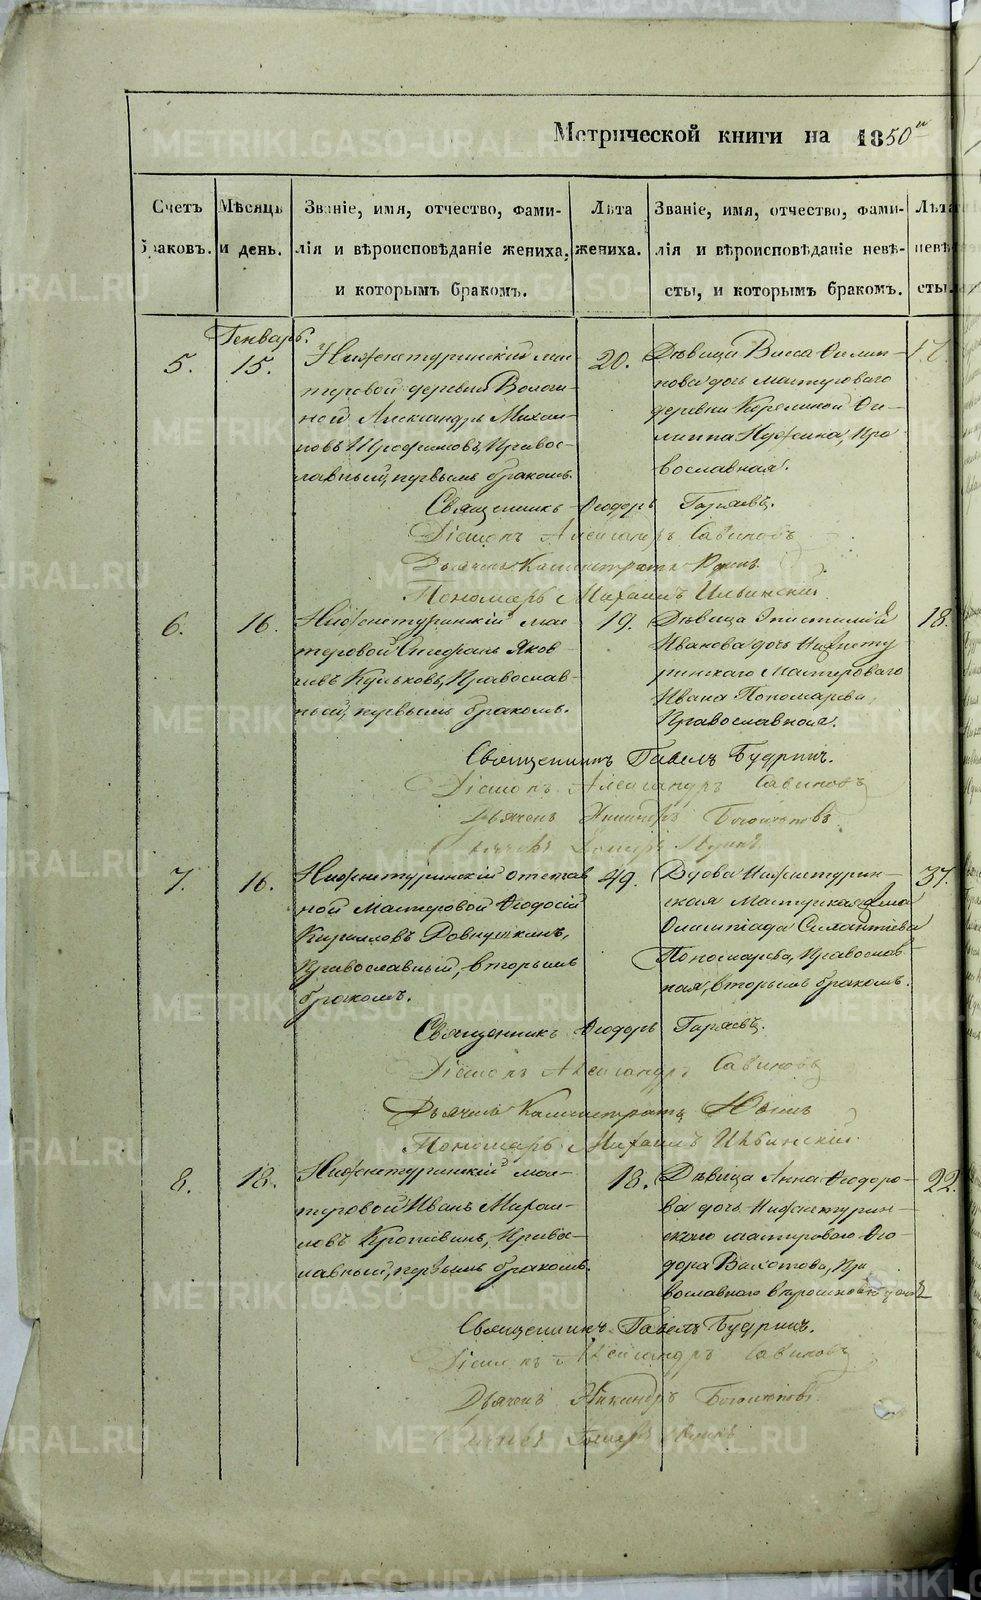 Метрической книги на 1850й
Счетъ браковъ.
Мѣсяцъ и день.
Званіе, имя, отчество, фами-
лія и вѣроисповѣданіе жениха,
и которымъ бракомъ.
Лѣта
жениха.
Званіе, имя, отчество, фами-
лія и вѣроисповѣданіе невѣ-
сты, и которымъ бракомъ.
Лѣта
невѣ
сты.
Генварь.
5.
15.
Нижнетуринскій мас-
теровой деревни Вологи-
ной Александръ Михаи-
ловъ Трофимовъ, Правос-
лавный, первымъ бракомъ.
20.
Дѣвица Васса Филип-
пова дочь мастероваго
деревни Корелиной Фи-
липпа, Пра-
вославная.
17
Священникъ Ѳеодоръ Гаряевъ.
Діаконъ Александръ Савиновъ
Дьячекъ Каллистратъ
Пономарь Михаилъ Ильинскій
6.
16.
Нижнетуринскій мас-
теровой Стефанъ Яков-
левъ Кульковъ, Православ-
ный, первымъ бракомъ.
19.
Дѣвица
Иванова дочь Нижнету
ринскаго Мастероваго
Ивана Пономарева,
Православная.
18.
Священникъ Павелъ Будринъ.
Діаконъ Александръ Савиновъ
Дьячекъ Никандръ
7.
16.
Нижнетуринскій отстав
ной Мастеровой Ѳеодосій
Кирилловъ
Православный, вторымъ
бракомъ.
49.
Вдова Нижнетурин-
ская Мастерская жена
Олимпіада
Пономарева, Православ
ная, вторымъ бракомъ.
37.
Священникъ Ѳеодоръ Гаряевъ.
Діаконъ Александръ Савиновъ
Дьячекъ Каллистратъ
Пономарь Михаилъ Ильинскій
8.
18.
Нижнетуринскій мас-
теровой Иванъ Михаи-
ловъ Кропивинъ, Правос-
лавный, первымъ бракомъ.
18.
Дѣвица Анна Ѳеодоро-
ва дочь Нижнетурин-
скаго мастероваго Ѳео-
дора, Пра
вославнаго вѣроисповѣд
22.
Священникъ Павелъ Будринъ.
Діаконъ Александръ Савиновъ
Дьячекъ Никандръ
METRIKI.GASO-URAL.RU